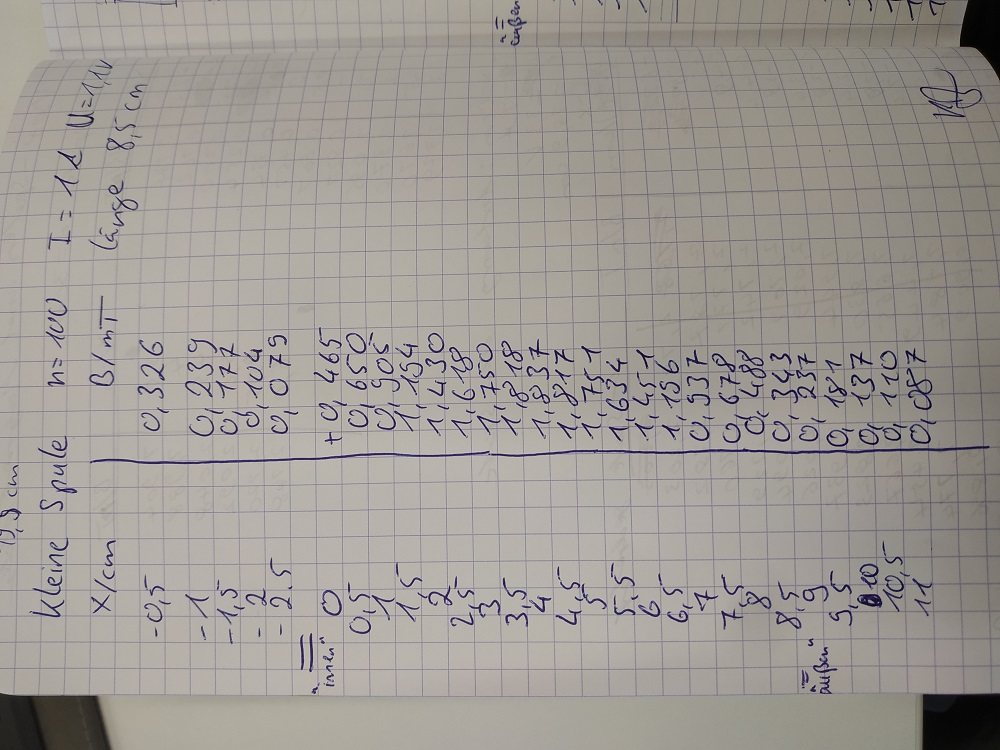 Kleine Spule n=100 I = 1A U=1,1V
X/cm B/mT Länge 8,5 cm
-0,5 0,326
-1 0,239
-1,5 0,177
-2 0,104
-2.5 0,079
"innen"
0 +0,465
0,5 0,650
1 0,905
1,5 1,154
2 1,430
2,5 1,618
3 1,750
3,5 1,818
4 1,837
4,5 1,817
5 1,751
5,5 1,634
6 1,451
6,5 1,156
7 0,937
7,5 0,678
8 0,488
8,5 0,343
"außen"
9 0,237
9,5 0,181
10 0,137
10,5 0,110
11 0,087
"außen"